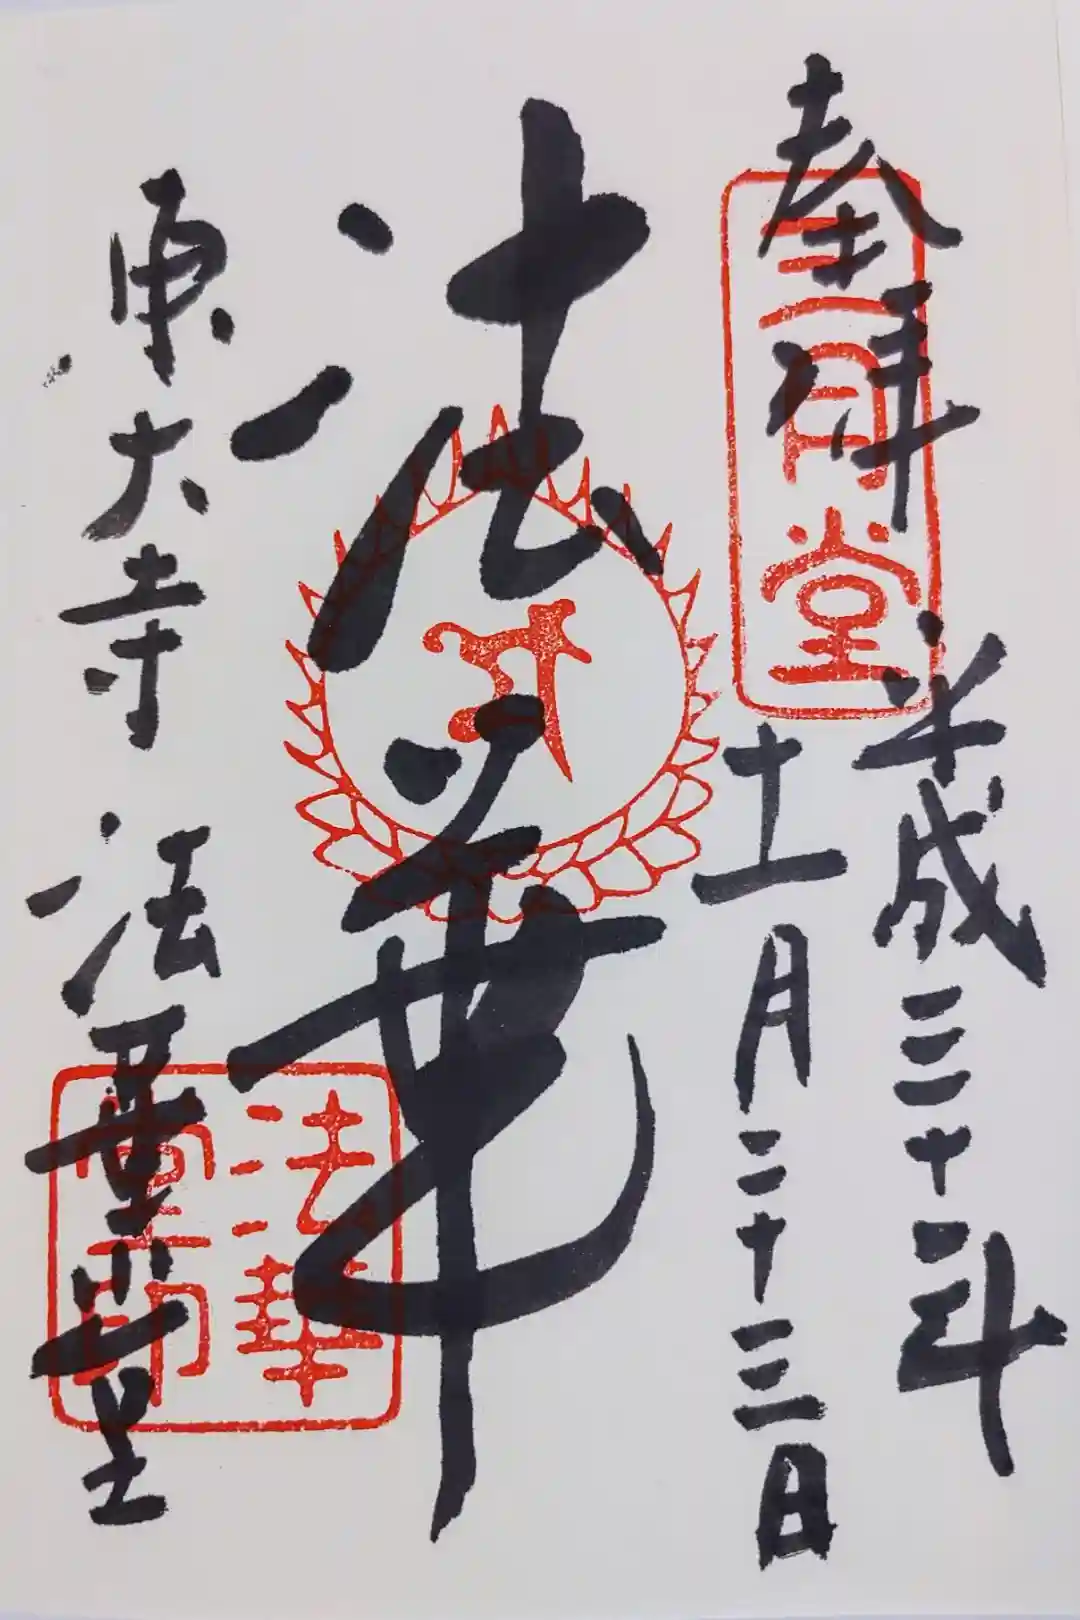 奉拝
三月堂
平成三十年
十一月二十三日
法華
東大寺 法華堂
法華
堂印